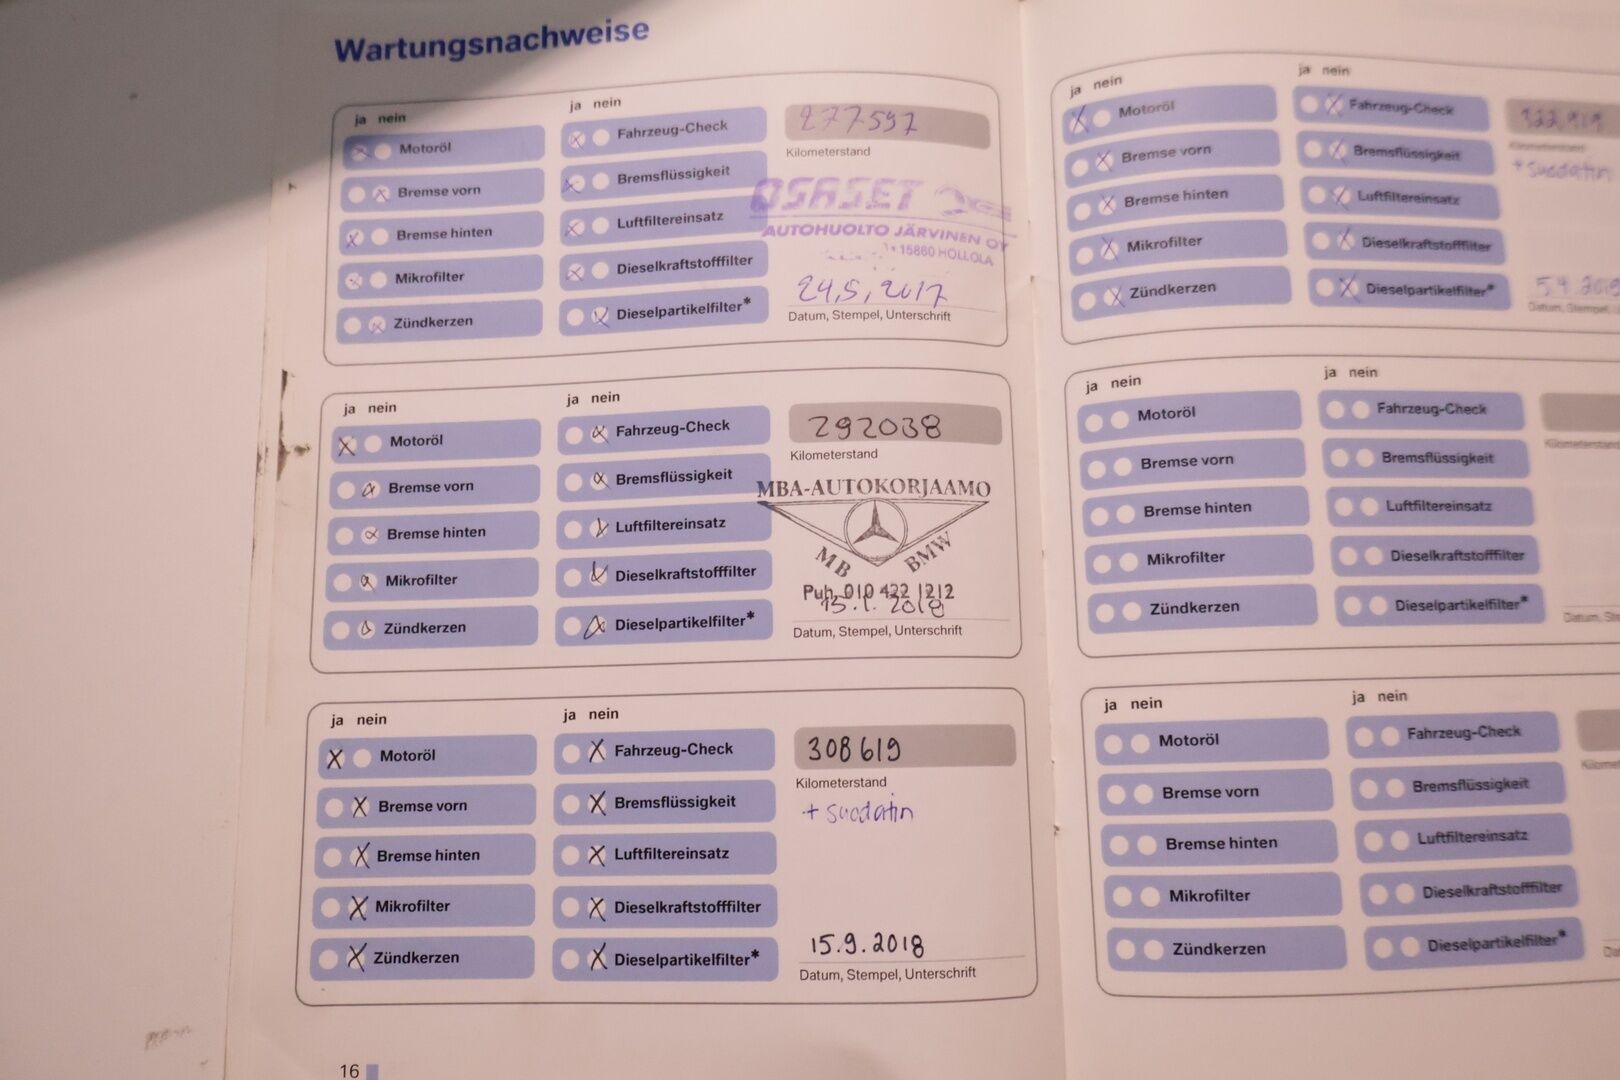 Wartungsnachweise
ja nein
Motoröl
Bremse vorn
Bremse hinten
Mikrofilter
Zündkerzen
ja nein
Fahrzeug-Check
Bremsflüssigkeit
Luftfiltereinsatz
Dieselkraftstofffilter
Dieselpartikelfilter*
277597
Kilometerstand
OSASET
AUTOHUOLTO JÄRVINEN OY
15860 HOLLOLA
24,5,2017
Datum, Stempel, Unterschrift
ja nein
Motoröl
Bremse vorn
Bremse hinten
Mikrofilter
Zündkerzen
ja nein
Fahrzeug-Check
Bremsflüssigkeit
Luftfiltereinsatz
Dieselkraftstofffilter
Dieselpartikelfilter*
292038
Kilometerstand
MBA-AUTOKORJAAMO
MB BMW
Puh. 010 422 1212
15.1.2018
Datum, Stempel, Unterschrift
ja nein
Motoröl
Bremse vorn
Bremse hinten
Mikrofilter
Zündkerzen
ja nein
Fahrzeug-Check
Bremsflüssigkeit
Luftfiltereinsatz
Dieselkraftstofffilter
Dieselpartikelfilter*
308619
Kilometerstand
+ suodatin
15.9.2018
Datum, Stempel, Unterschrift
16
ja nein
Motoröl
Bremse vorn
Bremse hinten
Mikrofilter
Zündkerzen
ja nein
Fahrzeug-Check
Bremsflüssigkeit
Luftfiltereinsatz
Dieselkraftstofffilter
Dieselpartikelfilter*
322919
Kilometerstand
+ suodatin
5.9.2019
Datum, Stempel,
ja nein
Motoröl
Bremse vorn
Bremse hinten
Mikrofilter
Zündkerzen
ja nein
Fahrzeug-Check
Bremsflüssigkeit
Luftfiltereinsatz
Dieselkraftstofffilter
Dieselpartikelfilter*
Kilometerstand
Datum,
ja nein
Motoröl
Bremse vorn
Bremse hinten
Mikrofilter
Zündkerzen
ja nein
Fahrzeug-Check
Bremsflüssigkeit
Luftfiltereinsatz
Dieselkraftstofffilter
Dieselpartikelfilter*